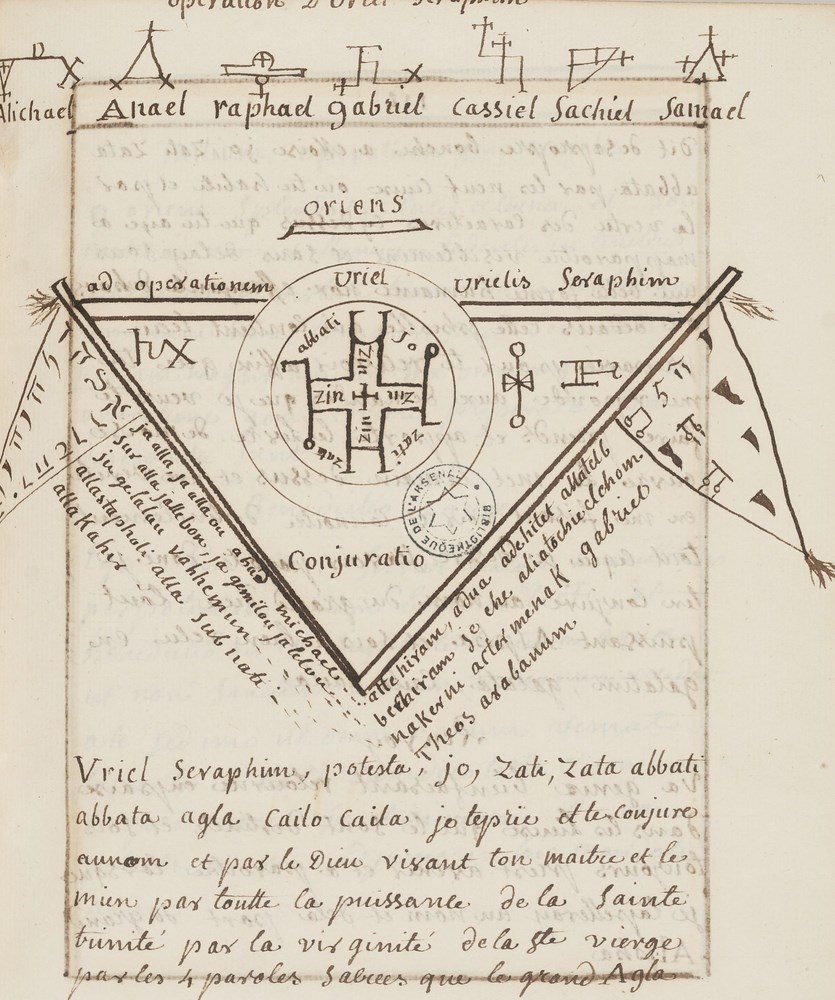 operation D'uriel Seraphim
Michael Anael raphael gabriel Cassiel Sachiel Samael
oriens
ad operationem Uriel Urielis Seraphim
abbati jo
zin
zin zin
zin
zati
Conjuratio
BIBLIOTHEQUE DE L'ARSENAL
ja alla, ja alla ou michael
sur alla jallebon, ja gemilou jalelou
ju gelalau vahhemun
allastapholi alla sub nati
alla Kahir
atte hiram, adua adehitet allatelb
bethiram se che aliatochielchom
nakerni acter menak gabriel
Theos arabanum
Vriel Seraphim, potesta, jo, Zati, Zata abbati
abbata agla Cailo Caila jo teprie et te Conjure
aunom et par le Dieu vivant ton maitre et le
mien par toutte la puissance de la Sainte
trinité par la virginité dela Ste vierge
par les 4 paroles Sacrees que le grand Agla